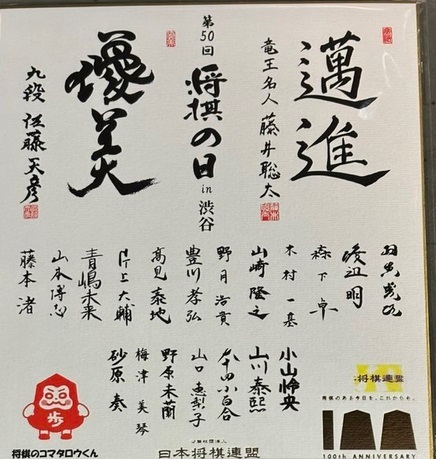 邁進
竜王名人 藤井聡太
第50回
将棋の日
in
渋谷
美
九段 佐藤天彦
羽生善治
渡辺明
森下卓
木村一基
山崎隆之
野月浩貴
豊川孝弘
高見泰地
片上大輔
青嶋未来
山本博志
藤本渚
小山怜央
山川泰熙
小百合
山口恵梨子
野原未蘭
梅津美琴
砂原奏
歩
将棋のコマタロウくん
公益社団法人
日本将棋連盟
将棋連盟
将棋のある今日を、これからも。
100
100th ANNIVERSARY